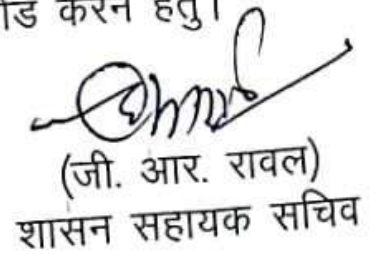 करने हेतु।
(जी. आर. रावल)
शासन सहायक सचिव